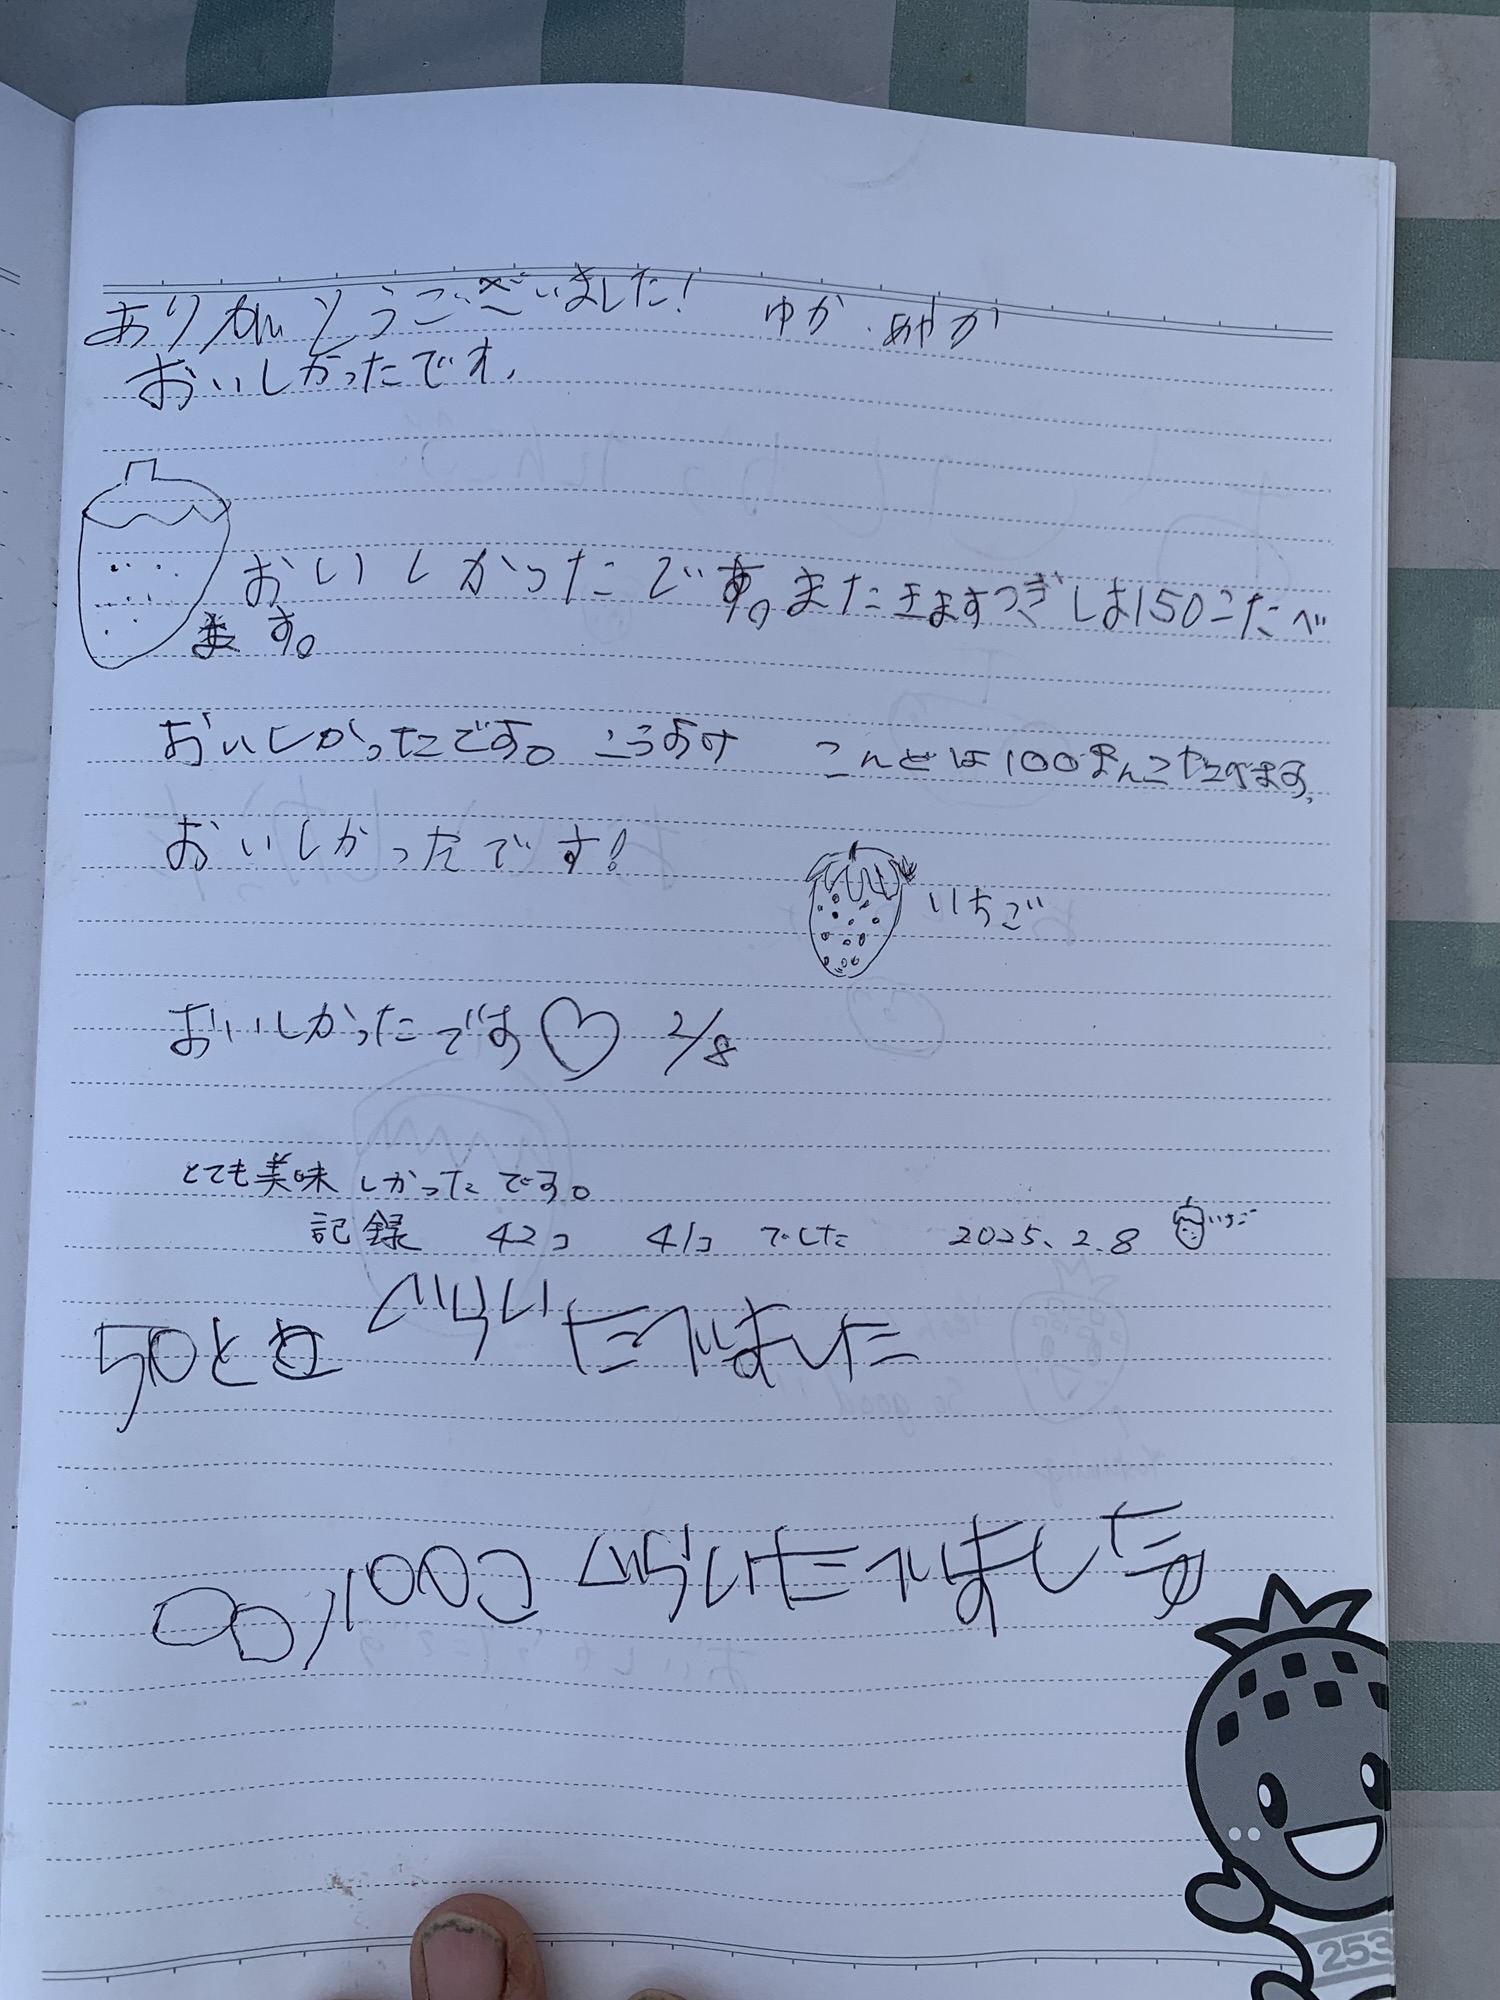 ありがとうございました! ゆか.あやか
おいしかったです.
おいしかったです。またきますつぎは150こたべ
ます。
おいしかったです。こうすけ こんどは100まんこたべます.
おいしかったです!
いちご
おいしかったです♡ 2/8
とても美味しかったです。
記録 42コ 41コ でした 2025.2.8 いちご
50と ぐらいたべました
100こ ぐらいたべました
253